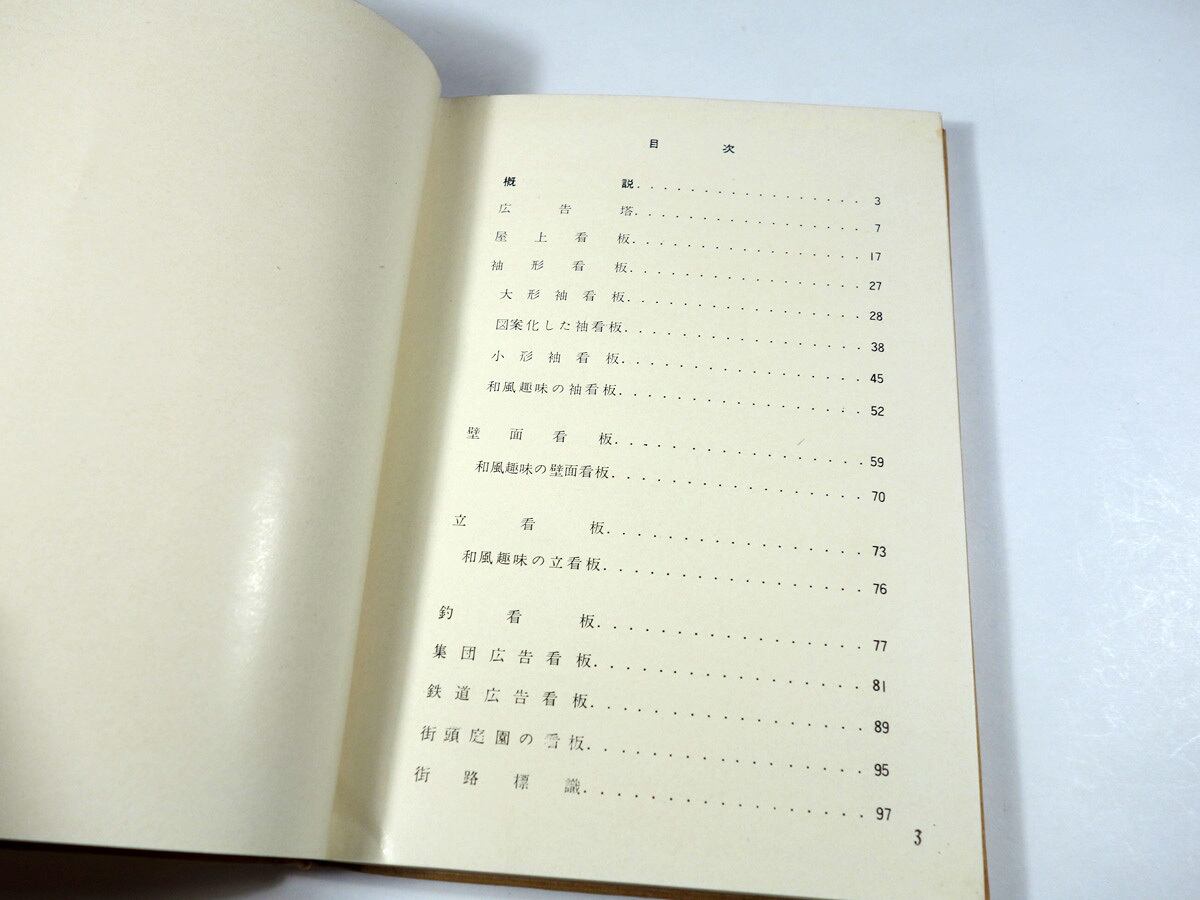 目次
概説..................3
広告塔..................7
屋上看板..................17
袖形看板..................27
大形袖看板..................28
図案化した袖看板..................38
小形袖看板..................45
和風趣味の袖看板..................52
壁面看板..................59
和風趣味の壁面看板..................70
立看板..................73
和風趣味の立看板..................76
釣看板..................77
集団広告看板..................81
鉄道広告看板..................89
街頭庭園の看板..................95
街路標識..................97
3